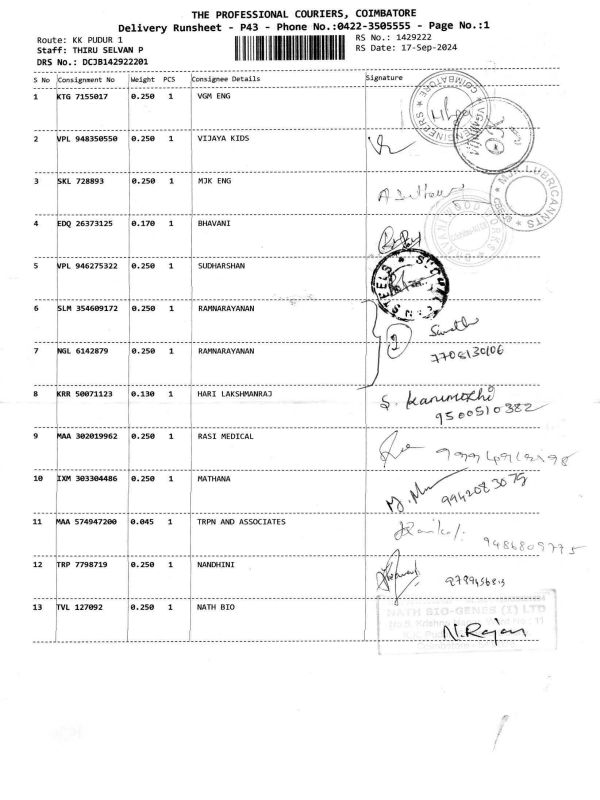 THE PROFESSIONAL COURIERS, COIMBATORE
Delivery Runsheet - P43 - Phone No.:0422-3505555 - Page No.:1
Route: KK PUDUR 1
RS No.: 1429222
Staff: THIRU SELVAN P
RS Date: 17-Sep-2024
DRS No.: DCJB142922201
S No Consignment No Weight PCS Consignee Details Signature
1 KTG 7155017 0.250 1 VGM ENG
2 VPL 948350550 0.250 1 VIJAYA KIDS
3 SKL 728893 0.250 1 MJK ENG
MJK LUBRICANTS
4 EDQ 26373125 0.170 1 BHAVANI
5 VPL 946275322 0.250 1 SUDHARSHAN
6 SLM 354609172 0.250 1 RAMNARAYANAN
2
7 NGL 6142879 0.250 1 RAMNARAYANAN
7708130106
8 KRR 50071123 0.130 1 HARI LAKSHMANRAJ
9500510382
9 MAA 302019962 0.250 1 RASI MEDICAL
10 IXM 303304486 0.250 1 MATHANA
9942083075
11 MAA 574947200 0.045 1 TRPN AND ASSOCIATES
9486809775
12 TRP 7798719 0.250 1 NANDHINI
13 TVL 127092 0.250 1 NATH BIO
NATH BIO-GENES (I) LTD
N.Rajan